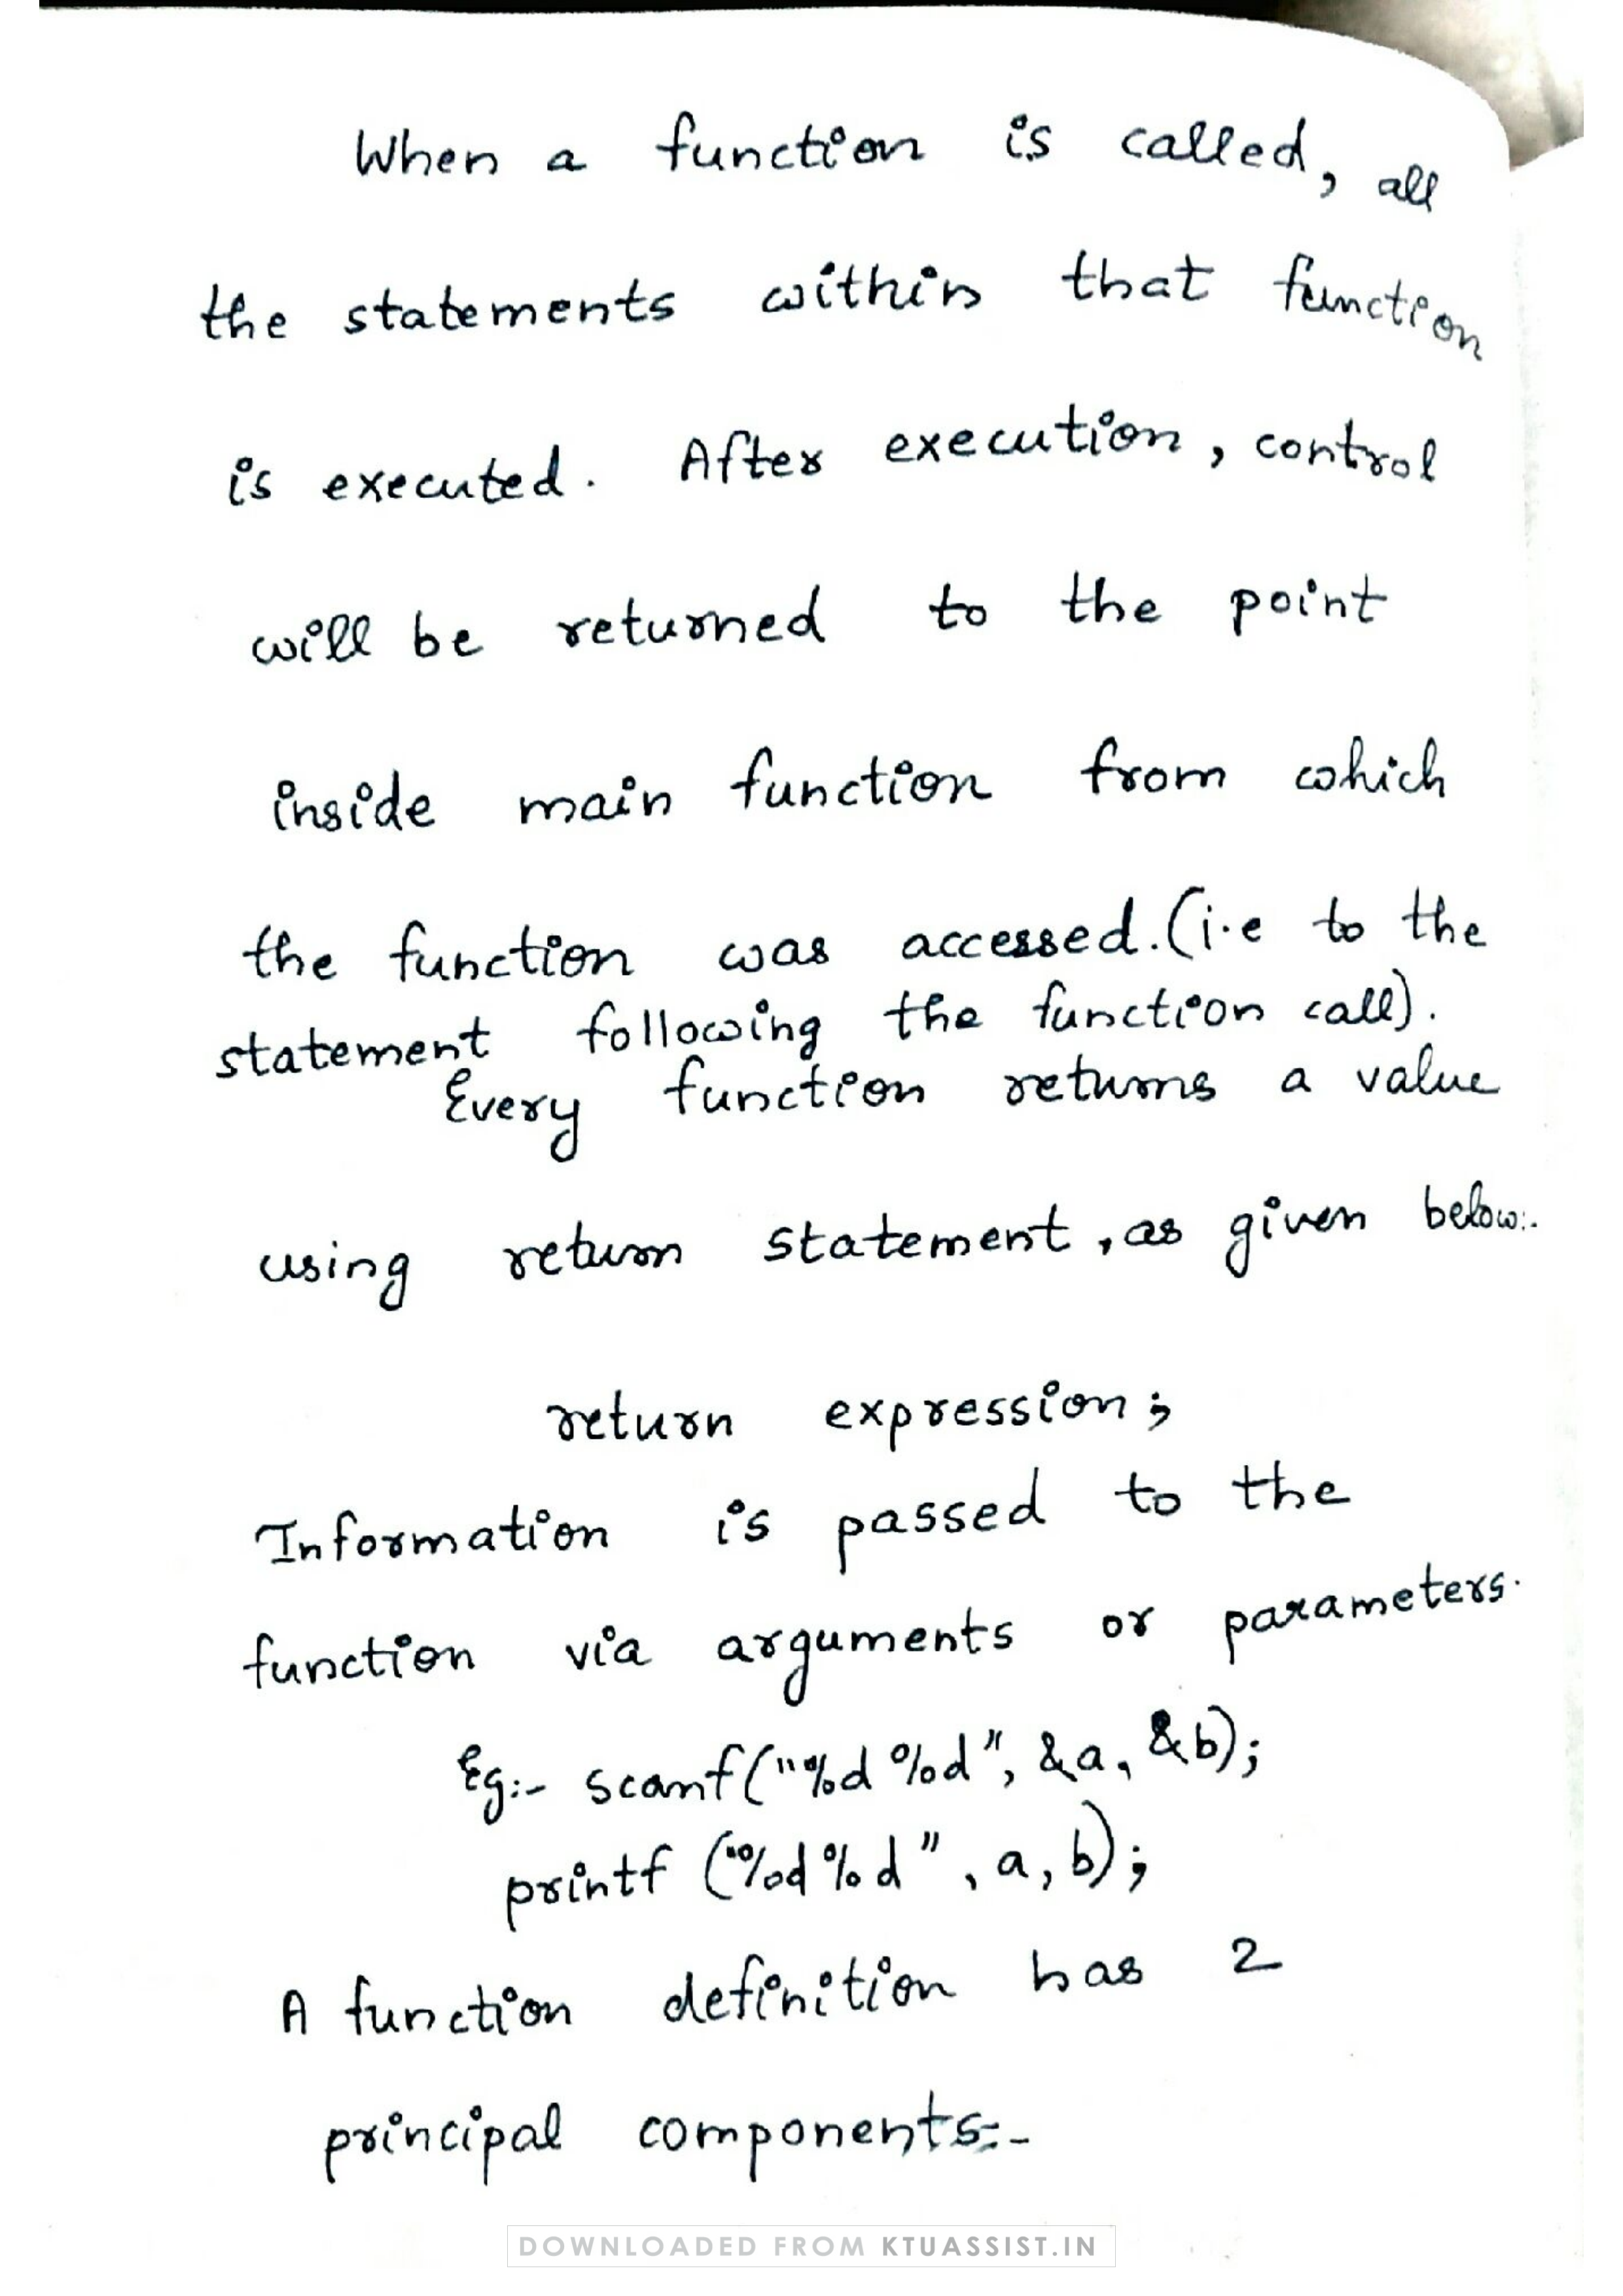 When a function is called, all
the statements within that function
is executed. After execution, control
will be returned to the point
inside main function from which
the function was accessed. (i.e to the
statement following the function call).
Every function returns a value
using return statement, as given below:-
return expression;
Information is passed to the
function via arguments or parameters.
Eg:- scanf("%d %d", &a, &b);
printf ("%d %d", a, b);
A function definition has 2
principal components:-
DOWNLOADED FROM KTUASSIST.IN